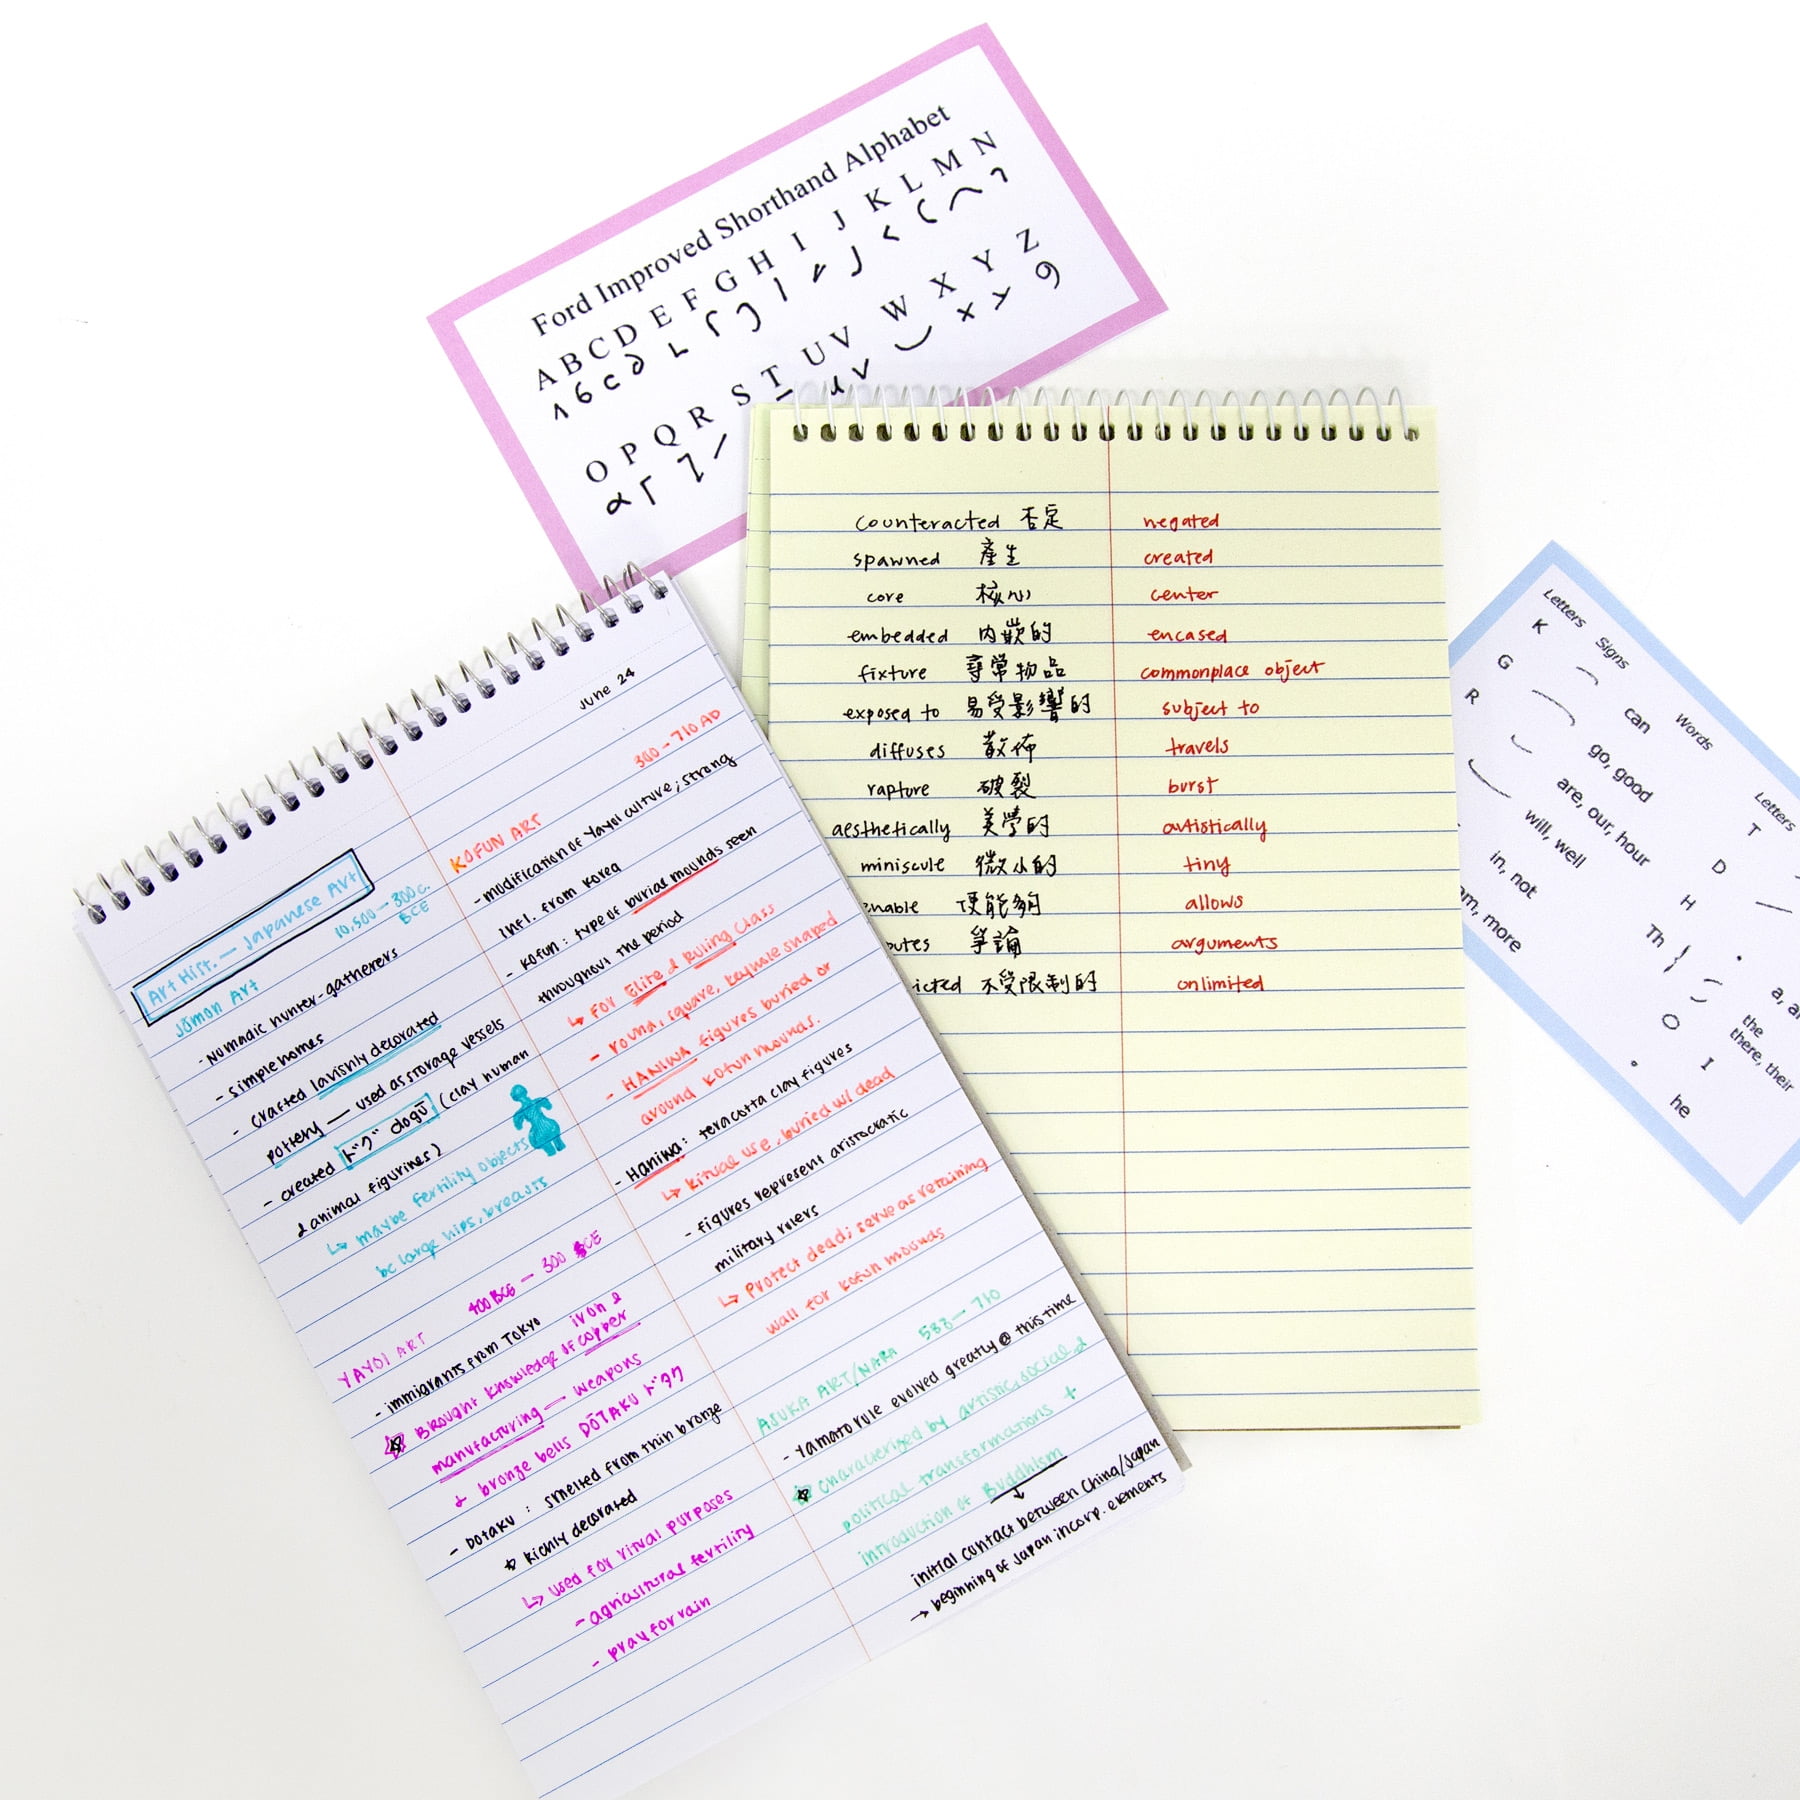 Ford Improved Shorthand Alphabet
A B C D E F G H I J K L M N
O P Q R S T U V W X Y Z
counteracted 否定 negated
spawned 產生 created
core 核心 center
embedded 內嵌的 encased
fixture 尋常物品 commonplace object
exposed to 易受影響的 subject to
diffuses 散佈 travels
rapture 破裂 burst
aesthetically 美學的 artistically
miniscule 微小的 tiny
enable 使能夠 allows
putes 爭論 arguments
icted 不受限制的 unlimited
June 24
Art Hist. — Japanese Art
10,500 — 300 c.
BCE
Jōmon Art
- Nomadic hunter-gatherers
- simple homes
- crafted lavishly decorated
pottery — used as storage vessels
- created ドグ dogū (clay human
& animal figurines)
↳ maybe fertility objects
bc large hips, breasts
400 BCE — 300 BCE
YAYOI ART
- immigrants from Tokyo
☆ Brought knowledge of iron & copper
manufacturing — weapons
& bronze bells DŌTAKU ドタク
- DOTAKU : smelted from thin bronze
richly decorated
↳ used for ritual purposes
- agricultural fertility
- pray for rain
300 — 710 AD
KOFUN ART
- modification of Yayoi culture; strong
infl. from Korea
- Kofun : type of burial mounds seen
throughout the period
↳ FOR Elite & Ruling class
- round, square, keyhole shaped
- HANIWA figures buried or
around Kofun mounds.
- Haniwa: teracotta clay figures
↳ Ritual use, buried w/ dead
- figures represent aristocratic
military rulers
↳ Protect dead; serve as retaining
wall for kofun mounds
ASUKA ART/NARA 538 — 710
- Yamato rule evolved greatly @ this time
☆ characterized by artistic, social, &
political transformations +
introduction of Buddhism
↓
initial contact between China/Japan
→ beginning of Japan incorp. elements
Letters Signs Words Letters
K can
G go, good
R are, our, hour
will, well
in, not
am, more
T
D
H
Th
a, a
the
there, their
O
I
he